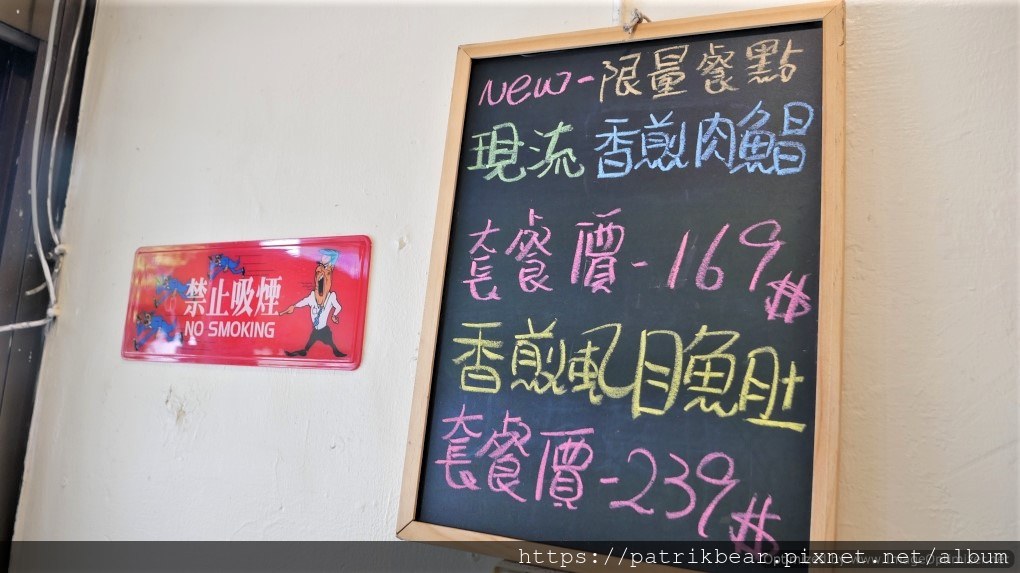 New-限量餐點
現流 香煎肉鯧
套餐價-169$
香煎虱目魚肚
套餐價-239$
禁止吸煙
NO SMOKING
https://patrikbear.pixnet.net/album